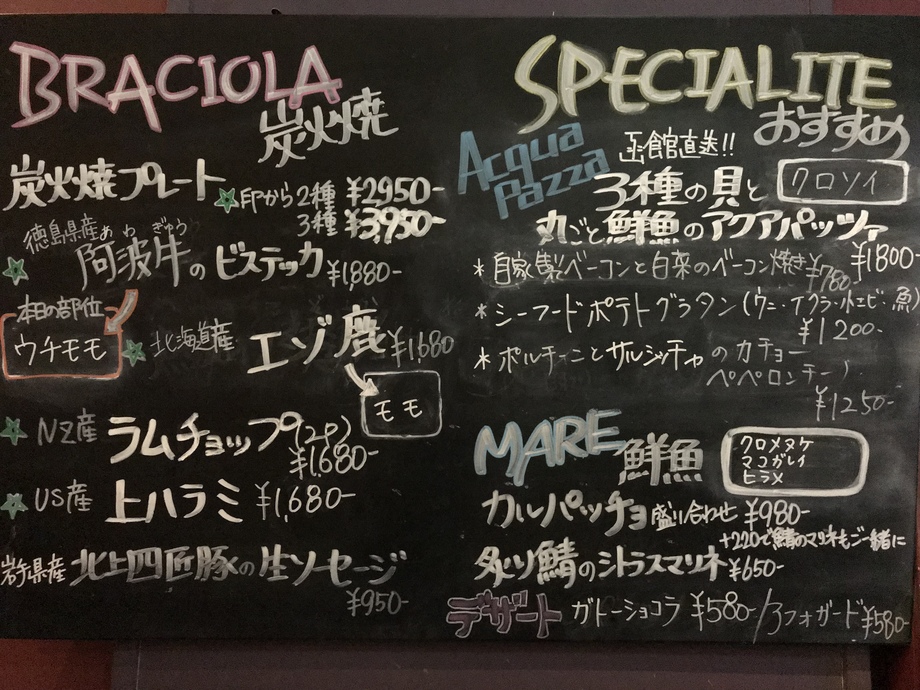 BRACIOLA
炭火焼
炭火焼プレート
☆印から2種 ¥2950-
3種 ¥3,950-
徳島県産 あわ ぎゅう
阿波牛のビステッカ ¥1,880-
本日の部位
ウチモモ
北海道産 エゾ鹿 ¥1,680
モモ
NZ産 ラムチョップ(2P)
¥1,680-
US産 上ハラミ ¥1,680-
岩手県産 北上四匠豚の生ソーセージ
¥950-
SPECIALITE
おすすめ
Acqua
Pazza
函館直送!!
3種の貝と クロソイ
丸ごと鮮魚のアクアパッツァ
¥1800-
*自家製ベーコンと白菜のベーコン焼き ¥780-
*シーフードポテトグラタン(ウニ・イクラ・小エビ・魚)
¥1200-
*ポルチーニとサルシッチャのカチョー
ペペロンチーノ
¥1250-
MARE 鮮魚
クロメヌケ
マコガレイ
ヒラメ
カルパッチョ盛り合わせ ¥980-
+220で鯖のマリネもご一緒に
炙り鯖のシトラスマリネ ¥650-
デザート ガトーショコラ ¥580-/アフォガード ¥580-